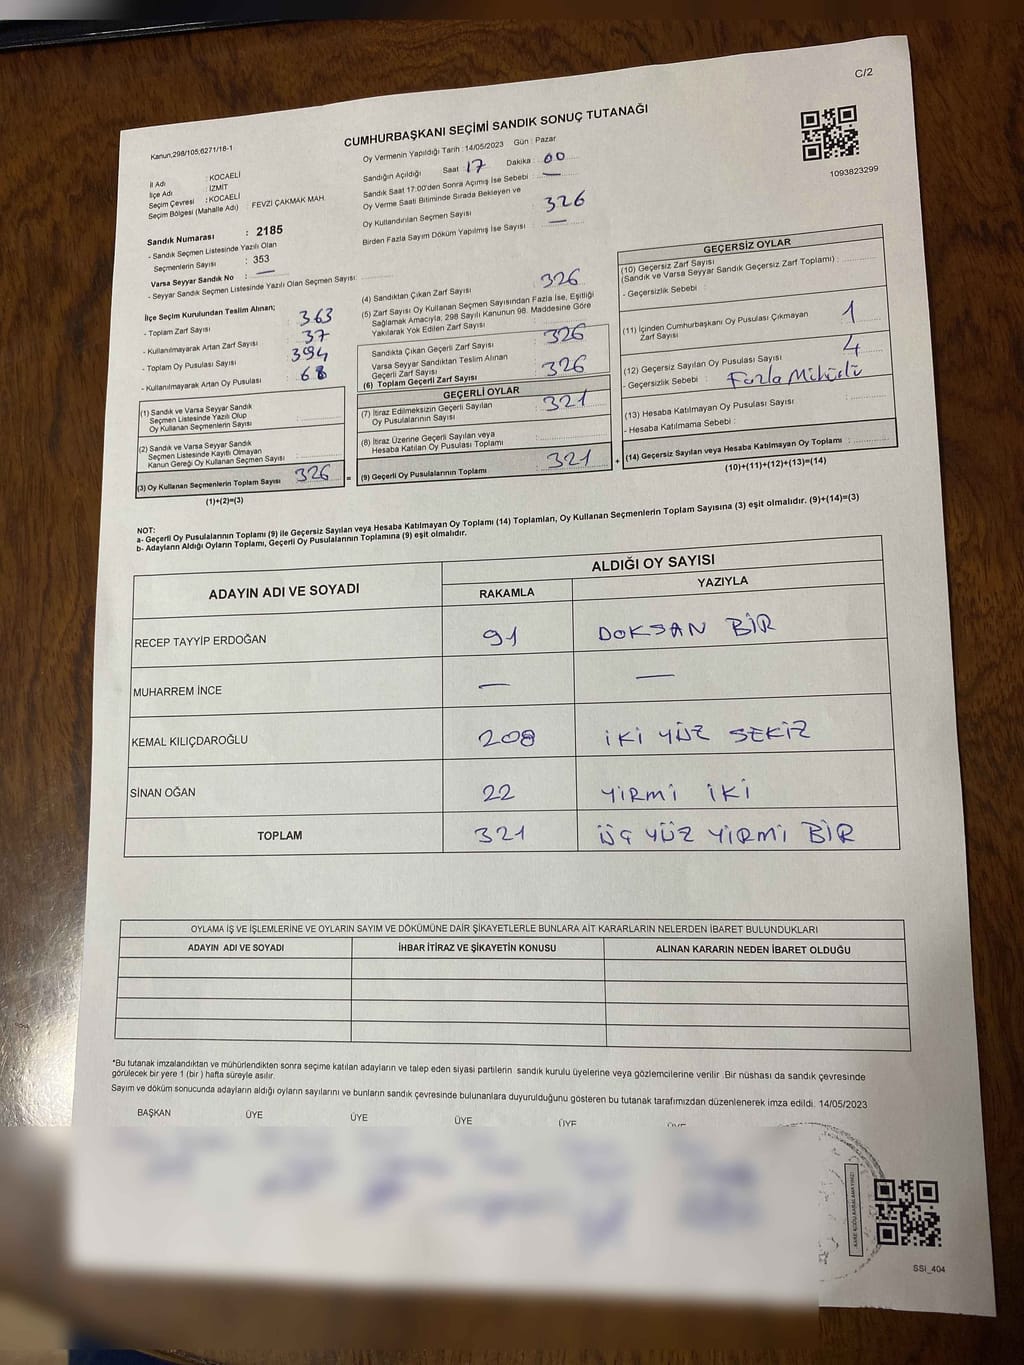 C/2
CUMHURBAŞKANI SEÇİMİ SANDIK SONUÇ TUTANAĞI
Kanun,298/105,6271/18-1
1093823299
İl Adı : KOCAELİ
İlçe Adı : İZMİT
Seçim Çevresi : KOCAELİ
Seçim Bölgesi (Mahalle Adı) : FEVZİ ÇAKMAK MAH.
Sandık Numarası : 2185
- Sandık Seçmen Listesinde Yazılı Olan
Seçmenlerin Sayısı : 353
Varsa Seyyar Sandık No : —
- Seyyar Sandık Seçmen Listesinde Yazılı Olan Seçmen Sayısı:
Oy Vermenin Yapıldığı Tarih :14/05/2023 Gün : Pazar
Sandığın Açıldığı Saat : 17 Dakika : 00
Sandık Saat 17:00'den Sonra Açımış İse Sebebi : —
Oy Verme Saati Bitiminde Sırada Bekleyen ve
Oy Kullandırılan Seçmen Sayısı 326
Birden Fazla Sayım Döküm Yapılmış İse Sayısı : —
İlçe Seçim Kurulundan Teslim Alınan;
- Toplam Zarf Sayısı 363
- Kullanılmayarak Artan Zarf Sayısı : 37
- Toplam Oy Pusulası Sayısı : 394
- Kullanılmayarak Artan Oy Pusulası : 68
(1) Sandık ve Varsa Seyyar Sandık
Seçmen Listesinde Yazılı Olup
Oy Kullanan Seçmenlerin Sayısı
(2) Sandık ve Varsa Seyyar Sandık
Seçmen Listesinde Kayıtlı Olmayan
Kanun Gereği Oy Kullanan Seçmen Sayısı :
(3) Oy Kullanan Seçmenlerin Toplam Sayısı 326 =
(1)+(2)=(3)
(4) Sandıktan Çıkan Zarf Sayısı 326
(5) Zarf Sayısı Oy Kullanan Seçmen Sayısından Fazla İse, Eşitliği
Sağlamak Amacıyla, 298 Sayılı Kanunun 98. Maddesine Göre
Yakılarak Yok Edilen Zarf Sayısı
Sandıkta Çıkan Geçerli Zarf Sayısı : 326
Varsa Seyyar Sandıktan Teslim Alınan
Geçerli Zarf Sayısı
(6) Toplam Geçerli Zarf Sayısı : 326
GEÇERLİ OYLAR
(7) İtiraz Edilmeksizin Geçerli Sayılan
Oy Pusulalarının Sayısı : 321
(8) İtiraz Üzerine Geçerli Sayılan veya
Hesaba Katılan Oy Pusulası Toplamı :
(9) Geçerli Oy Pusulalarının Toplamı : 321 +
GEÇERSİZ OYLAR
(10) Geçersiz Zarf Sayısı
(Sandık ve Varsa Seyyar Sandık Geçersiz Zarf Toplamı) :
- Geçersizlik Sebebi :
(11) İçinden Cumhurbaşkanı Oy Pusulası Çıkmayan
Zarf Sayısı 1
(12) Geçersiz Sayılan Oy Pusulası Sayısı 4
- Geçersizlik Sebebi : Fazla Mühürlü
(13) Hesaba Katılmayan Oy Pusulası Sayısı :
- Hesaba Katılmama Sebebi :
(14) Geçersiz Sayılan veya Hesaba Katılmayan Oy Toplamı :
(10)+(11)+(12)+(13)=(14)
NOT:
a- Geçerli Oy Pusulalarının Toplamı (9) ile Geçersiz Sayılan veya Hesaba Katılmayan Oy Toplamı (14) Toplamları, Oy Kullanan Seçmenlerin Toplam Sayısına (3) eşit olmalıdır. (9)+(14)=(3)
b- Adayların Aldığı Oyların Toplamı, Geçerli Oy Pusulalarının Toplamına (9) eşit olmalıdır.
ADAYIN ADI VE SOYADI ALDIĞI OY SAYISI
RAKAMLA YAZIYLA
RECEP TAYYİP ERDOĞAN 91 DOKSAN BİR
MUHARREM İNCE — —
KEMAL KILIÇDAROĞLU 208 İKİ YÜZ SEKİZ
SİNAN OĞAN 22 YİRMİ İKİ
TOPLAM 321 ÜÇ YÜZ YİRMİ BİR
OYLAMA İŞ VE İŞLEMLERİNE VE OYLARIN SAYIM VE DÖKÜMÜNE DAİR ŞİKAYETLERLE BUNLARA AİT KARARLARIN NELERDEN İBARET BULUNDUKLARI
ADAYIN ADI VE SOYADI İHBAR İTİRAZ VE ŞİKAYETİN KONUSU ALINAN KARARIN NEDEN İBARET OLDUĞU
*Bu tutanak imzalandıktan ve mühürlendikten sonra seçime katılan adayların ve talep eden siyasi partilerin sandık kurulu üyelerine veya gözlemcilerine verilir .Bir nüshası da sandık çevresinde
görülecek bir yere 1 (bir ) hafta süreyle asılır.
Sayım ve döküm sonucunda adayların aldığı oyların sayılarını ve bunların sandık çevresinde bulunanlara duyurulduğunu gösteren bu tutanak tarafımızdan düzenlenerek imza edildi. 14/05/2023
BAŞKAN ÜYE ÜYE ÜYE ÜYE ÜYE
SSİ_404